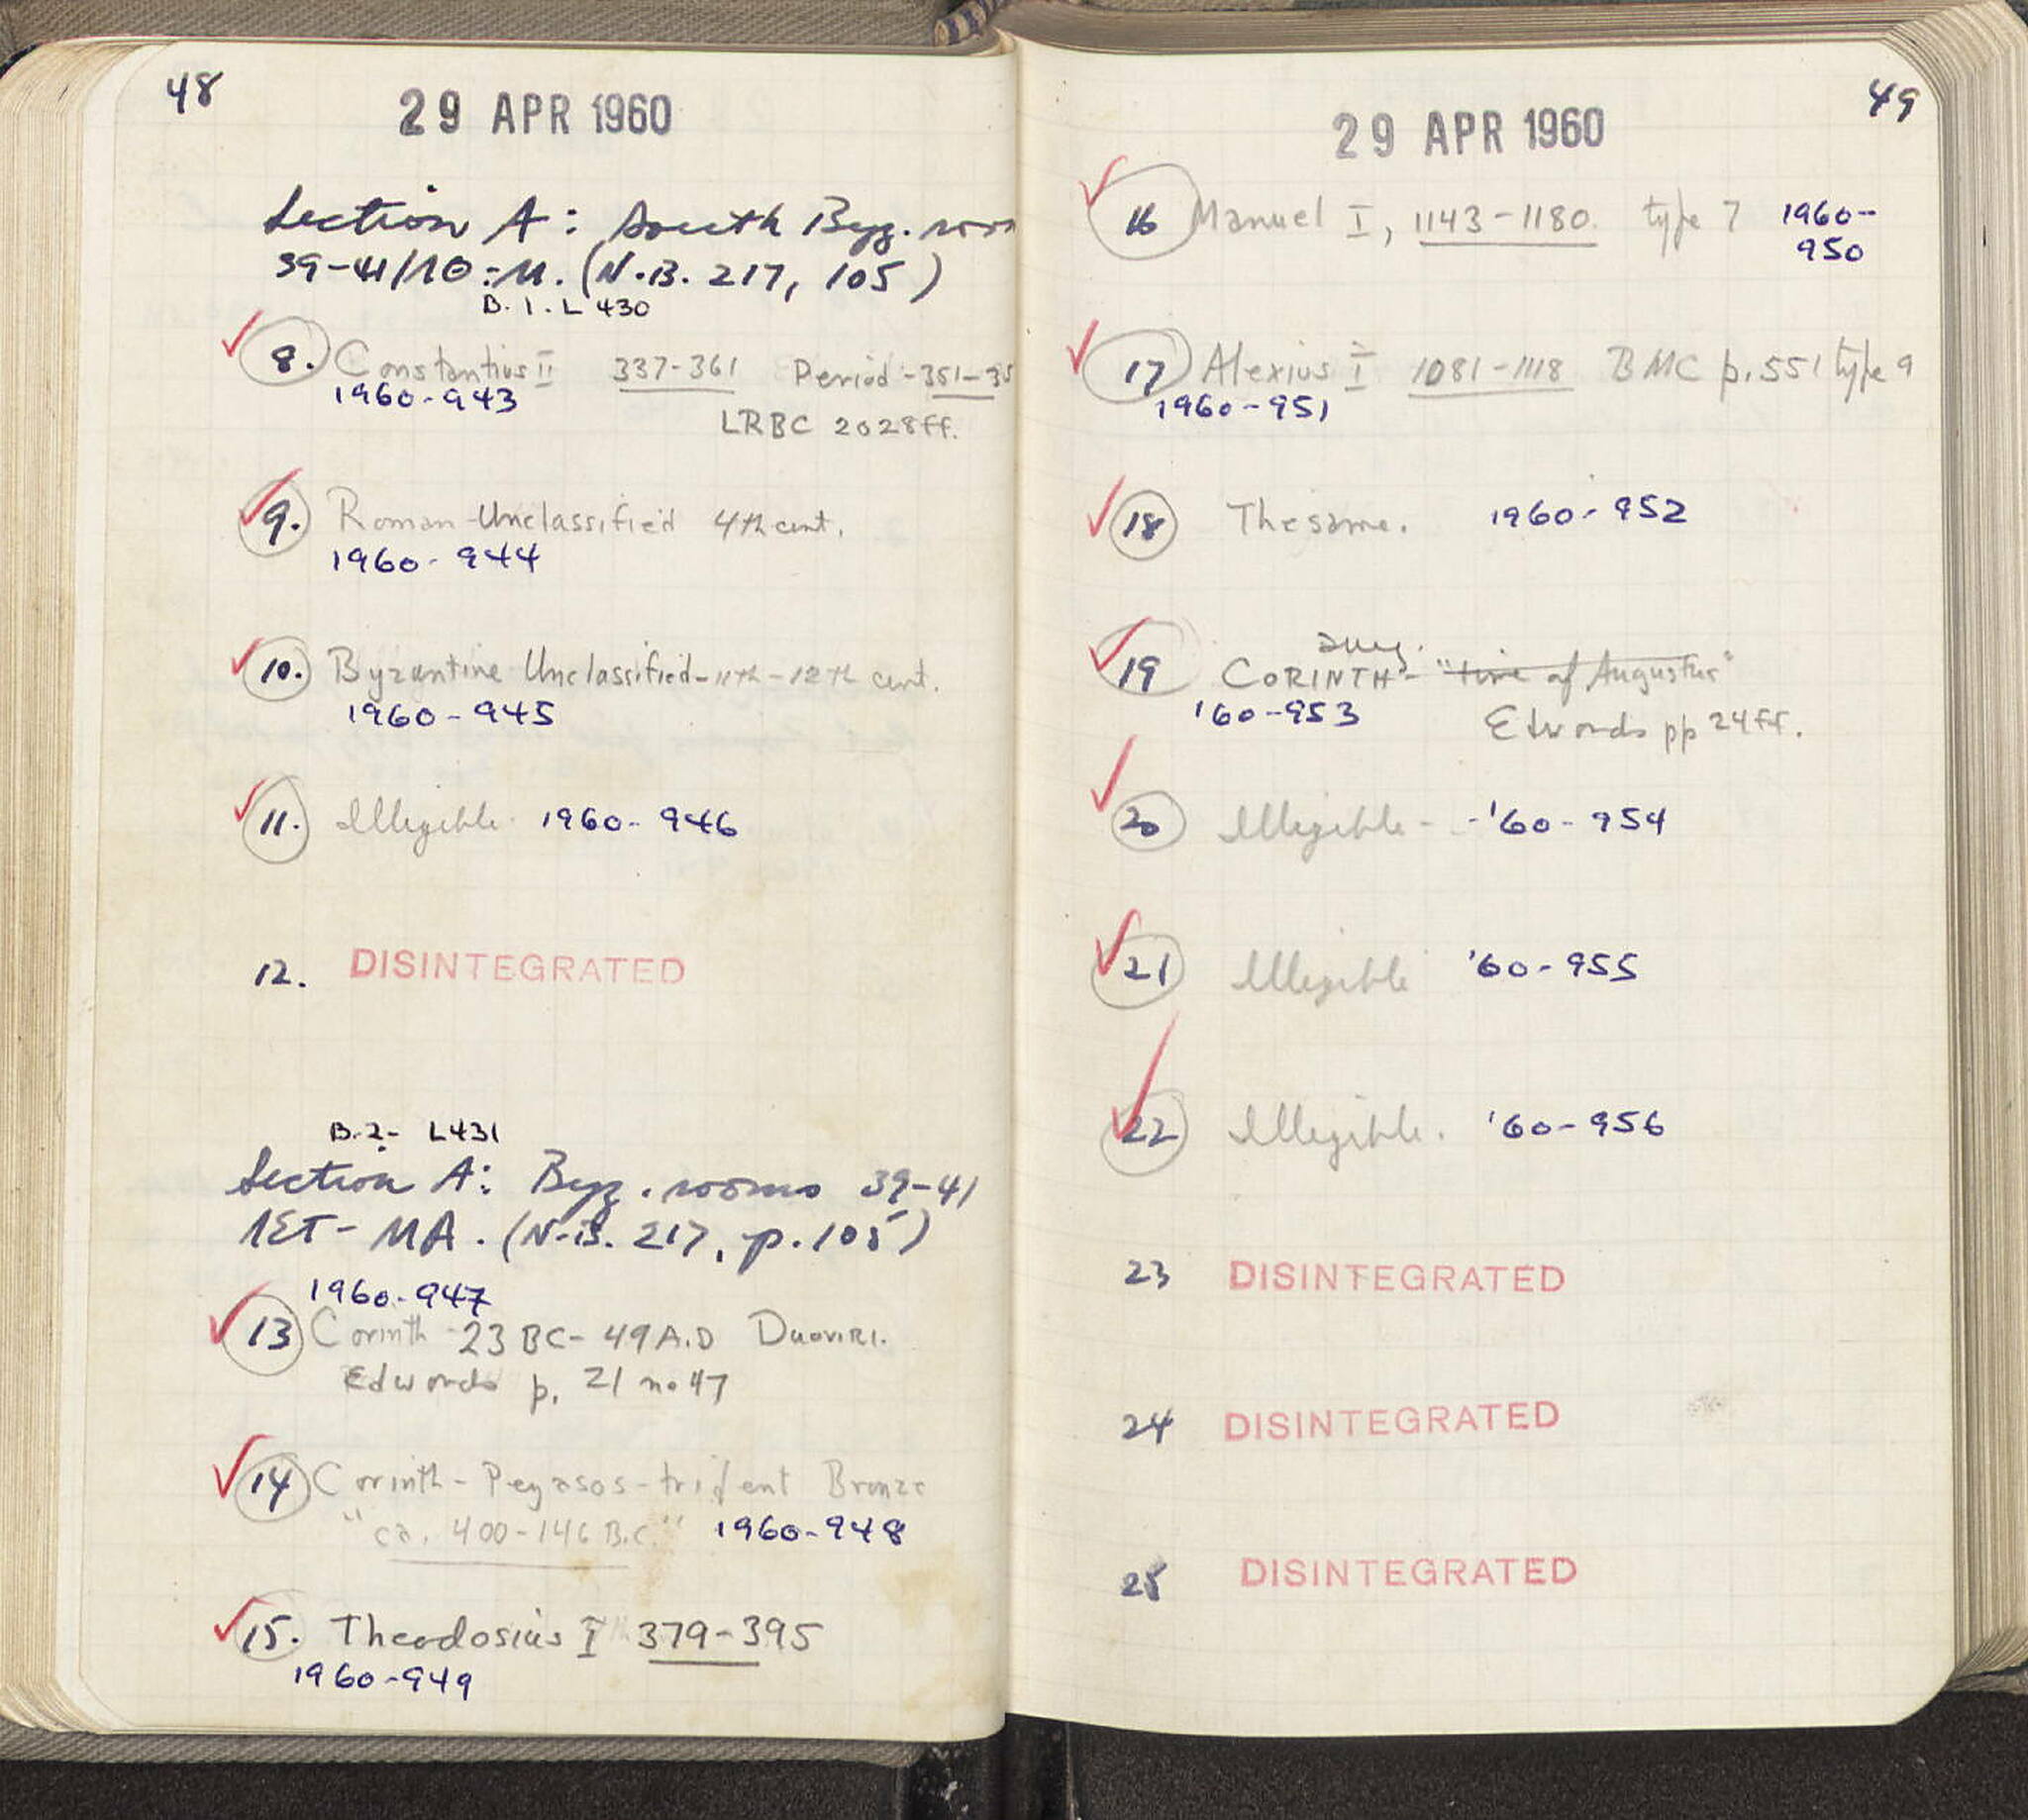 48
29 APR 1960
Section A: South Byz. room
39-41/10:M. (N.B. 217, 105)
B. 1. L 430
8. Constantius II 337-361 Period - 351-35
1960-943
LRBC 2028ff.
9. Roman-Unclassified 4th cent.
1960-944
10. Byzantine Unclassified-11th-12th cent.
1960-945
11. Illegible. 1960-946
12. DISINTEGRATED
B.2- L431
Section A: Byz. rooms 39-41
MA. (N.B. 217, p. 105)
1960-947
13 Corinth 23 BC- 49 A.D DUOVIRI.
Edwards p. 21 no 47
14 Corinth - Pegasos-trident Bronze
"ca. 400-146 B.C." 1960-948
15. Theodosius I 379-395
1960-949
49
29 APR 1960
16 Manuel I, 1143-1180. type 7 1960-
950
17 Alexius I 1081-1118 BMC p. 551 type 9
1960-951
18 The same. 1960-952
aug.
19 CORINTH- "time of Augustus"
'60-953
Edwards pp 24ff.
20 Illegible - -'60-954
21 Illegible '60-955
22 Illegible. '60-956
23 DISINTEGRATED
24 DISINTEGRATED
25 DISINTEGRATED